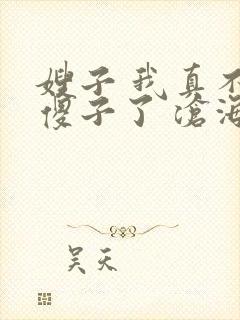 嫂子我真不
傻子了滄海
吴天